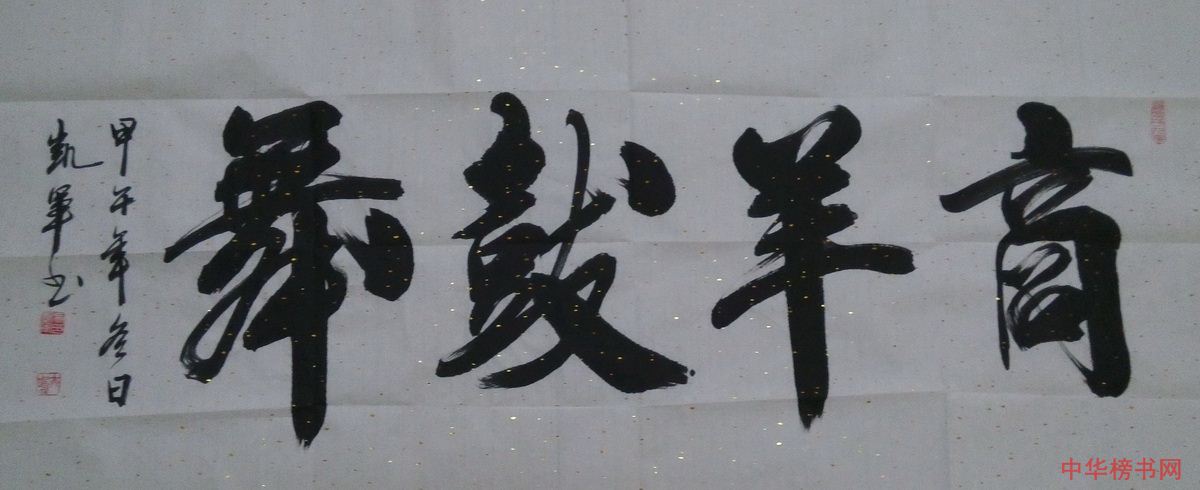 商羊鼓舞
甲午年冬日
凯军书
中华榜书网